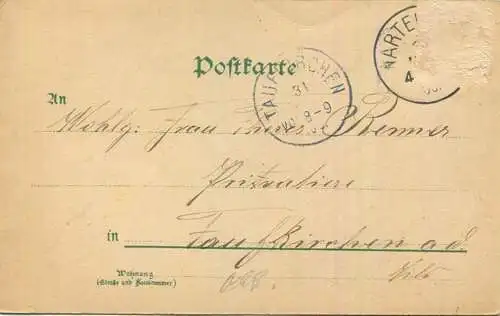 Postkarte
TAUFKIRCHEN
31
8-9
WARTE
4
An
Wohlg: Frau Renner
Privatiere
in
Taufkirchen a d.
Vils.
Wohnung
(Straße und Hausnummer)